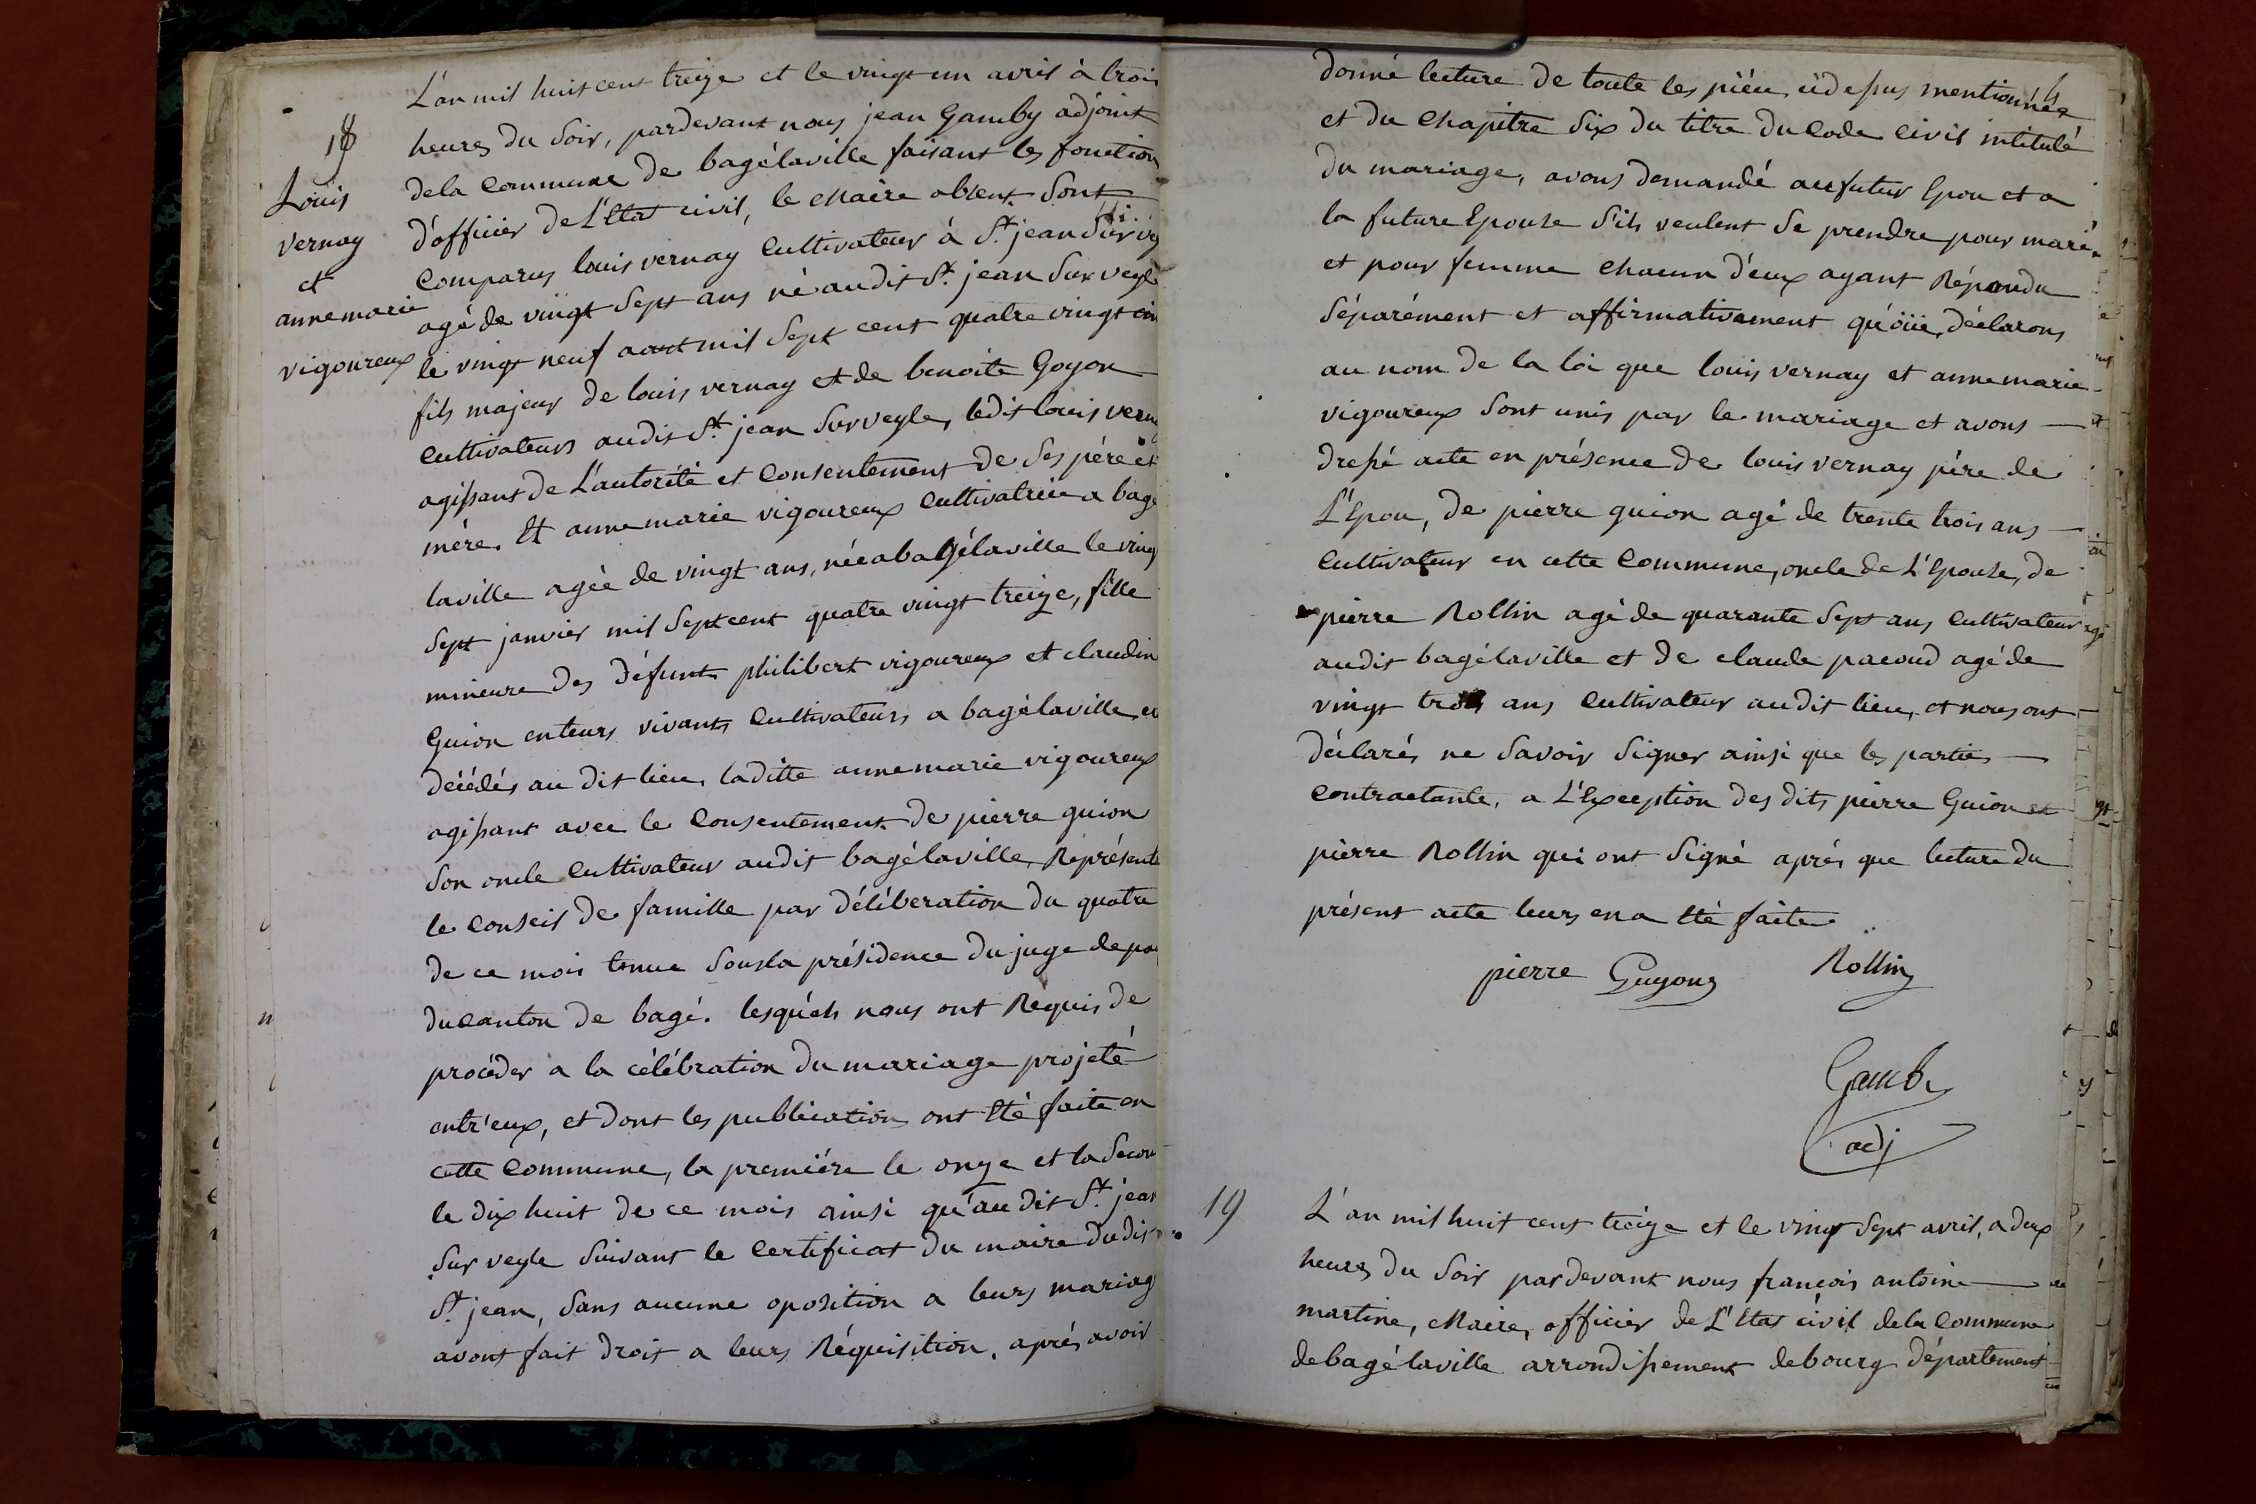 18
Louis
vernay
et
annemarie
vigoureux
L'an mil huit cent treize et le vingt un avril à trois
heures du soir, pardevant nous jean Gamby adjoint
dela commune de bagélaville faisant les fonction
d'officier de L'Etat civil, le Maire absent. Sont
comparus louis vernay cultivateur à St. jean Sur
agé de vingt Sept ans né audit St. jean Sur veyle
le vingt neuf aout mil Sept cent quatre vingt cin
fils majeur de louis vernay et de benoite Goyon
cultivateurs audit St. jean Sur veyle, ledit louis verna
agissant de L'autorité et consentement de Ses père et
mère. Et annemarie vigoureux cultivatrice a bagé
laville agée de vingt ans, née a bagélaville le vingt
Sept janvier mil Sept cent quatre vingt treize, fille
mineure des défunts philibert vigoureux et claudin
Guion en leurs vivants cultivateurs a bagélaville, et
décédés au dit lieu, laditte annemarie vigoureux
agissant avec le consentement de pierre guion
Son oncle cultivateur audit bagélaville, Représenta
le conseil de famille par délibération du quatre
de ce mois tenue Sous la présidence du juge de pai
du canton de bagé. lesquéls nous ont Requis de
procéder a la célébration du mariage projeté
entr'eux, et dont les publication ont Eté faite en
cette commune, la première le onze et la Secon
le dix huit de ce mois ainsi qu'au dit St. jean
Sur veyle Suivant le certificat du maire dudit
St. jean, Sans aucune oposition a leurs mariag
avont fait droit a leurs Réquisition, après avoir
donné lecture de toute les piéce cidessus mentionnées
et du chapitre Six du titre du code civil intitulé
du mariage, avons demandé au futur Epou et a
la future Epouse S'ils veulent Se prendre pour mari
et pour femme chacun d'eux ayant Répondu
Séparément et affirmativement qu'öüi, déclarons
au nom de la loi que louis vernay et annemarie
vigoureux Sont unis par le mariage et avons
dressé acte en présence de louis vernay père de
L'Epou, de pierre guion agé de trente trois ans
cultivateur en cette commune, oncle de L'Epouse, de
pierre Rollin agé de quarante Sept ans cultivateur
audit bagélaville et de claude pacoud agé de
vingt trois ans cultivateur audit lieu, et nous ont
déclarés ne Savoir Signer ainsi que les parties
contractante, a L'Exception des dits pierre Guion et
pierre Rollin qui ont Signé après que lecture du
présent acte leurs en a Eté faite
pierre Guyon Rollin
Gamby
adj
19
L'an mil huit cent treize et le vingt Sept avril, a deux
heures du Soir pardevant nous françois antoine
martine, Maire, officier de L'Etat civil dela commune
de bagélaville arrondissement de bourg département